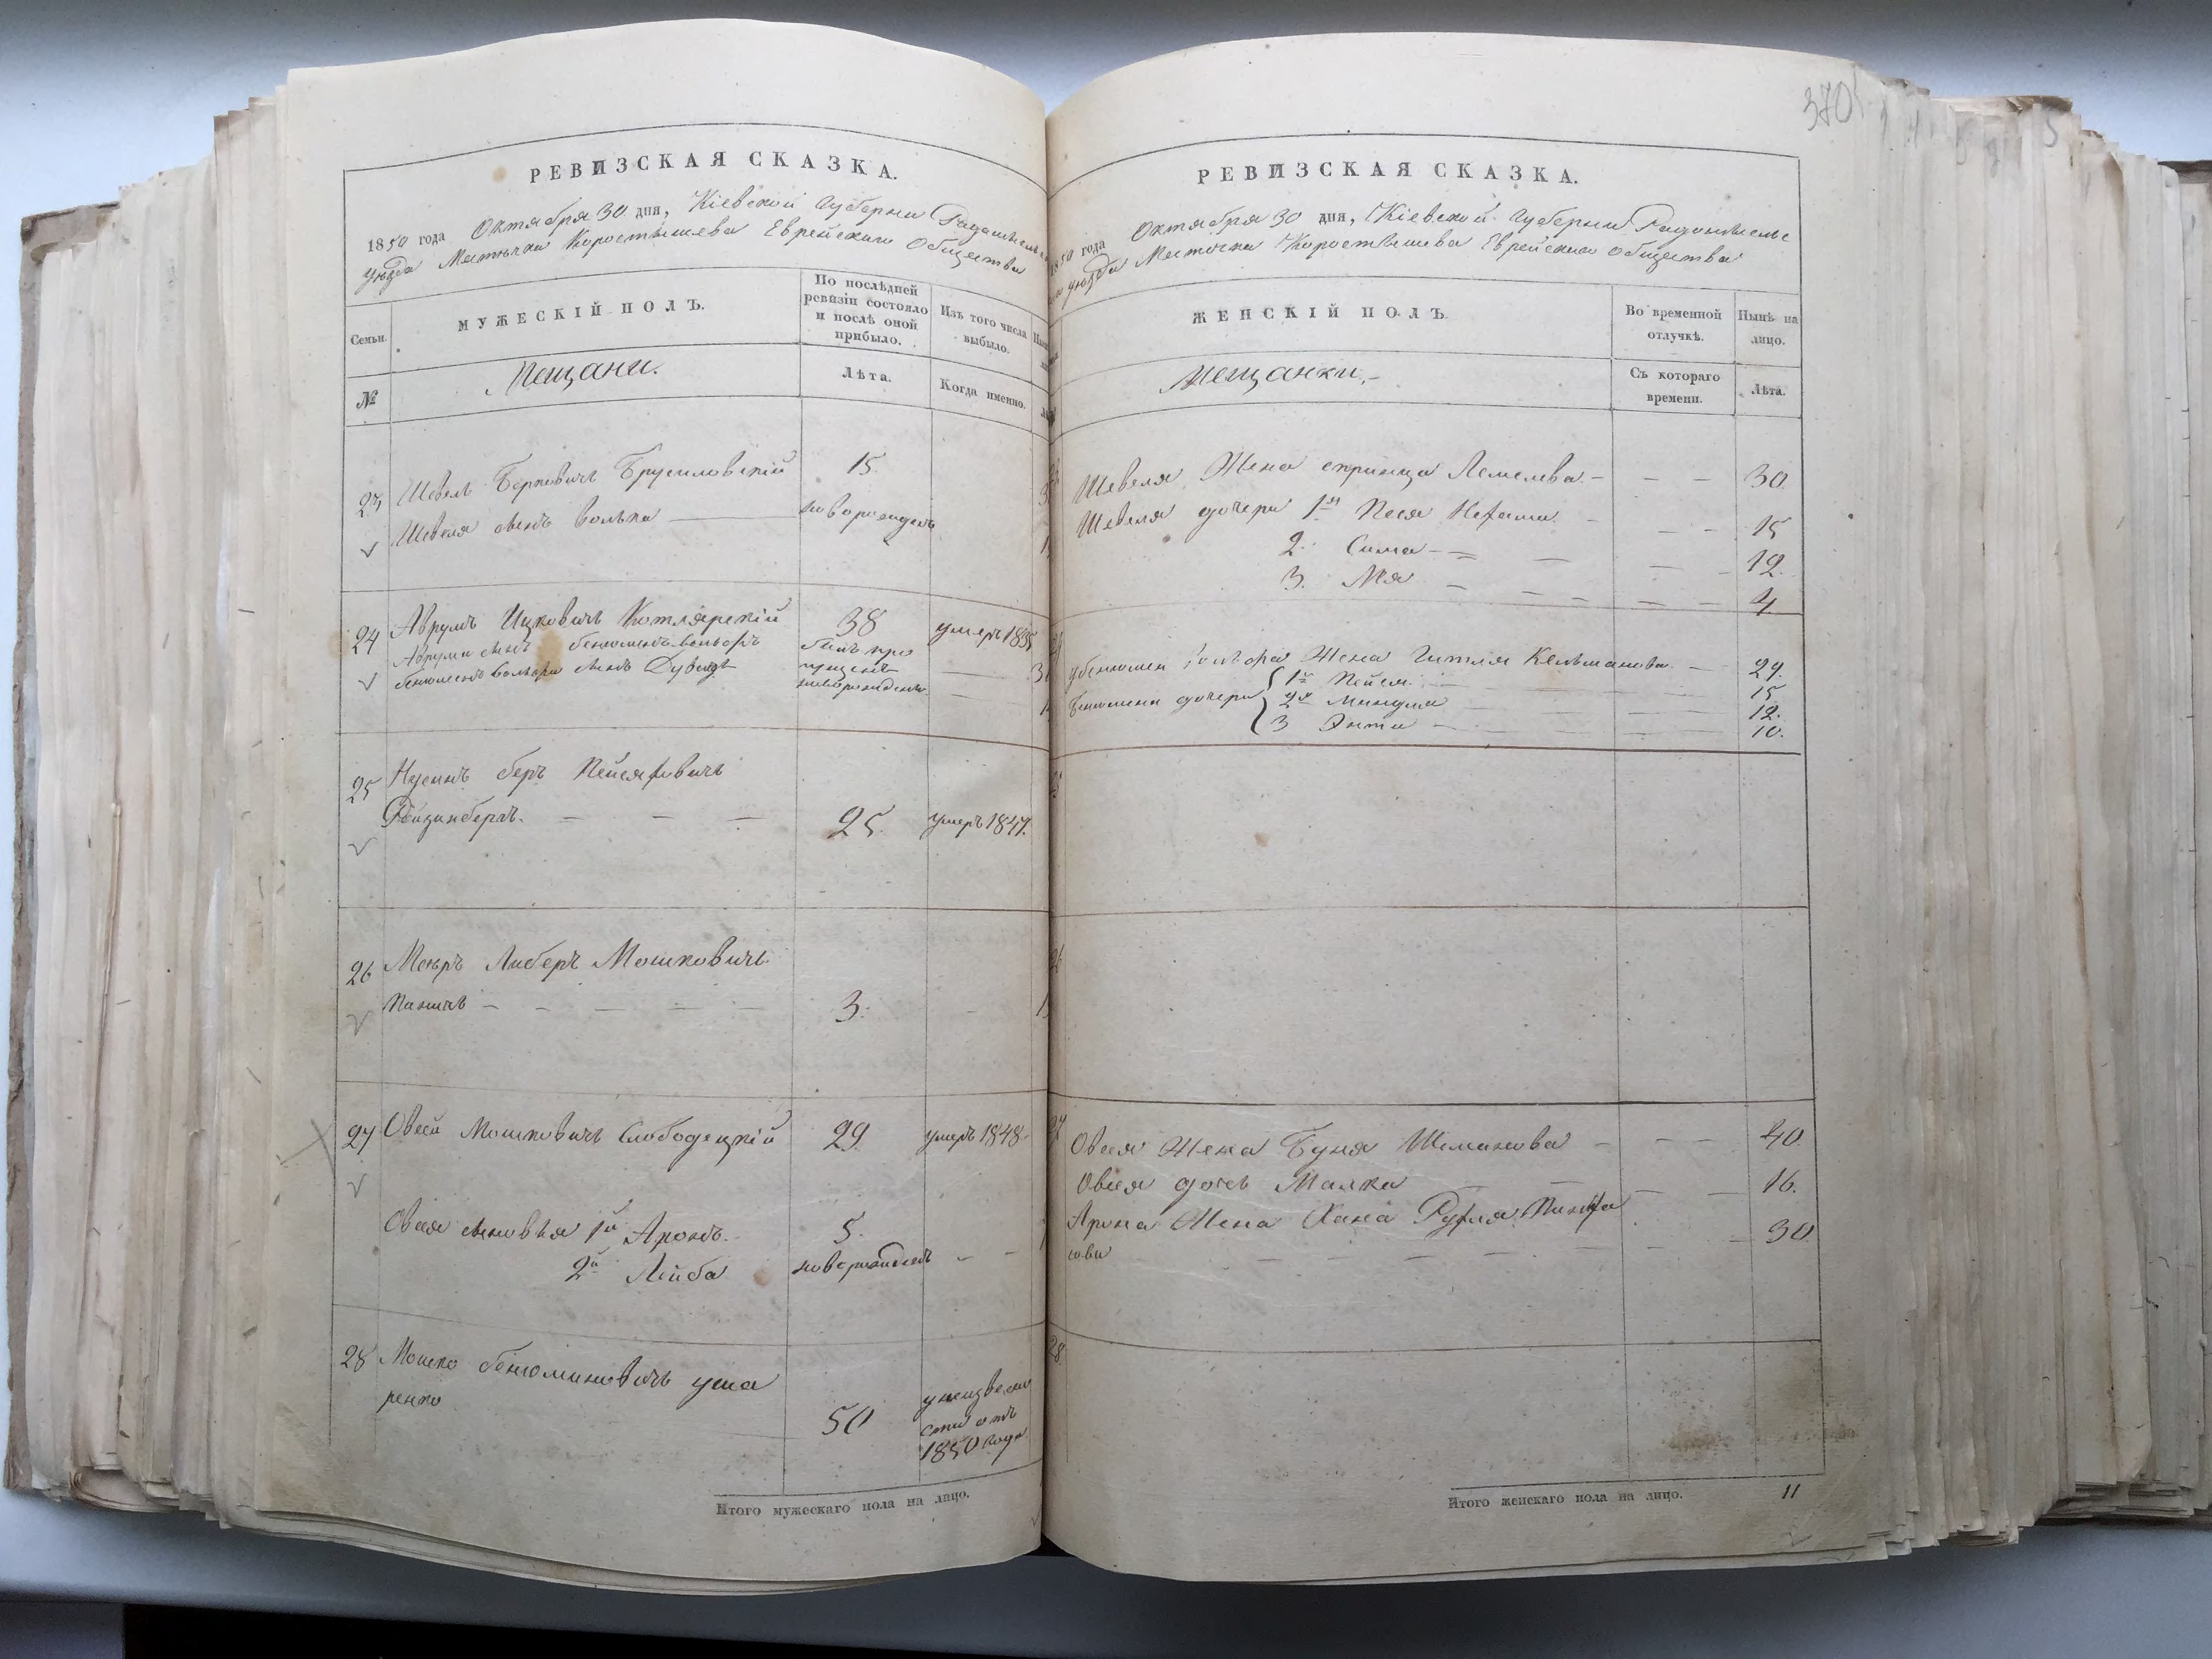 РЕВИЗСКАЯ СКАЗКА.
1850 года Октября 30 дня, Кіевской Губерніи
уезда Местечка Коростышева Еврейскаго Общества
Семьи.
МУЖЕСКІЙ ПОЛЪ.
По послѣдней ревизіи состояло и послѣ оной прибыло.
Изъ того числа выбыло.
№
Мещани.
Лѣта.
Когда именно.
23 Шевель Берковичъ Брусиловскій 15.
Шевеля сынъ Волько новорожденъ
24 Аврумъ Ицковичъ Котлярскій 38 умеръ 1835
Аврума сынъ бенюминъ вольфъ былъ пропущенъ
новорожденъ
25 Нусинъ беръ
25. умеръ 1847.
26 Мееръ Либеръ Мошковичъ
3.
27 Овсей Мошковичъ Слободецкій 29. умеръ 1848
Овсея сыновья 1й Аронъ 5.
2й Лейба новорожденъ
28 Мошко бенюминовичъ уша
ренко
50
1850 года
Итого мужескаго пола на лицо.
370
РЕВИЗСКАЯ СКАЗКА.
1850 года Октября 30 дня, Кіевской Губерніи
уезда Местечка Коростышева Еврейскаго общества
ЖЕНСКІЙ ПОЛЪ.
Во временной отлучкѣ.
Нынѣ на лицо.
Мещанки.
Съ котораго времени.
Лѣта.
Шевеля Жена скринца Лемелева 30.
Шевеля дочери 1я Песя Нехама 15
2. Сима 12.
3. 4.
Жена Гитля Кельманова 29.
дочери 1я Пейся 15
2я 12.
3 Энта 10.
27 Овсея Жена Буня Шиманова 40.
Овсея дочь Малка 16.
Арона Жена Хана Рухля
30.
28
Итого женскаго пола на лицо. 11